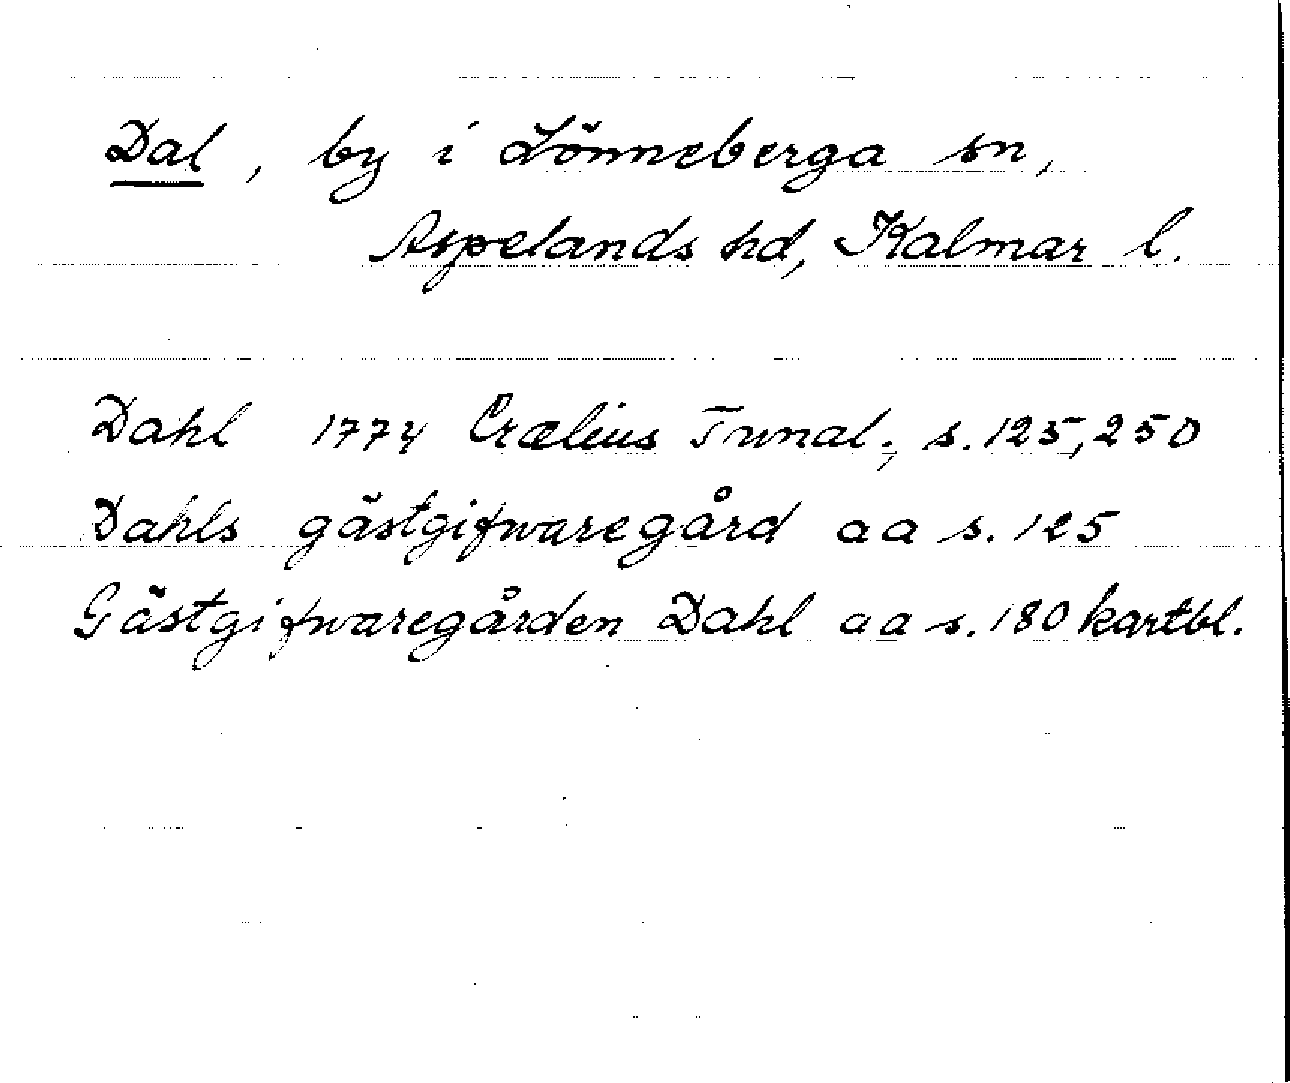 Dal, by i Lönneberga sn,
Aspelands hd, Kalmar l.
Dahl 1774 Crælius Tunal., s. 125, 250
Dahls gästgifwaregård aa s. 125
Gästgifwaregården Dahl aa s. 180 kartbl.